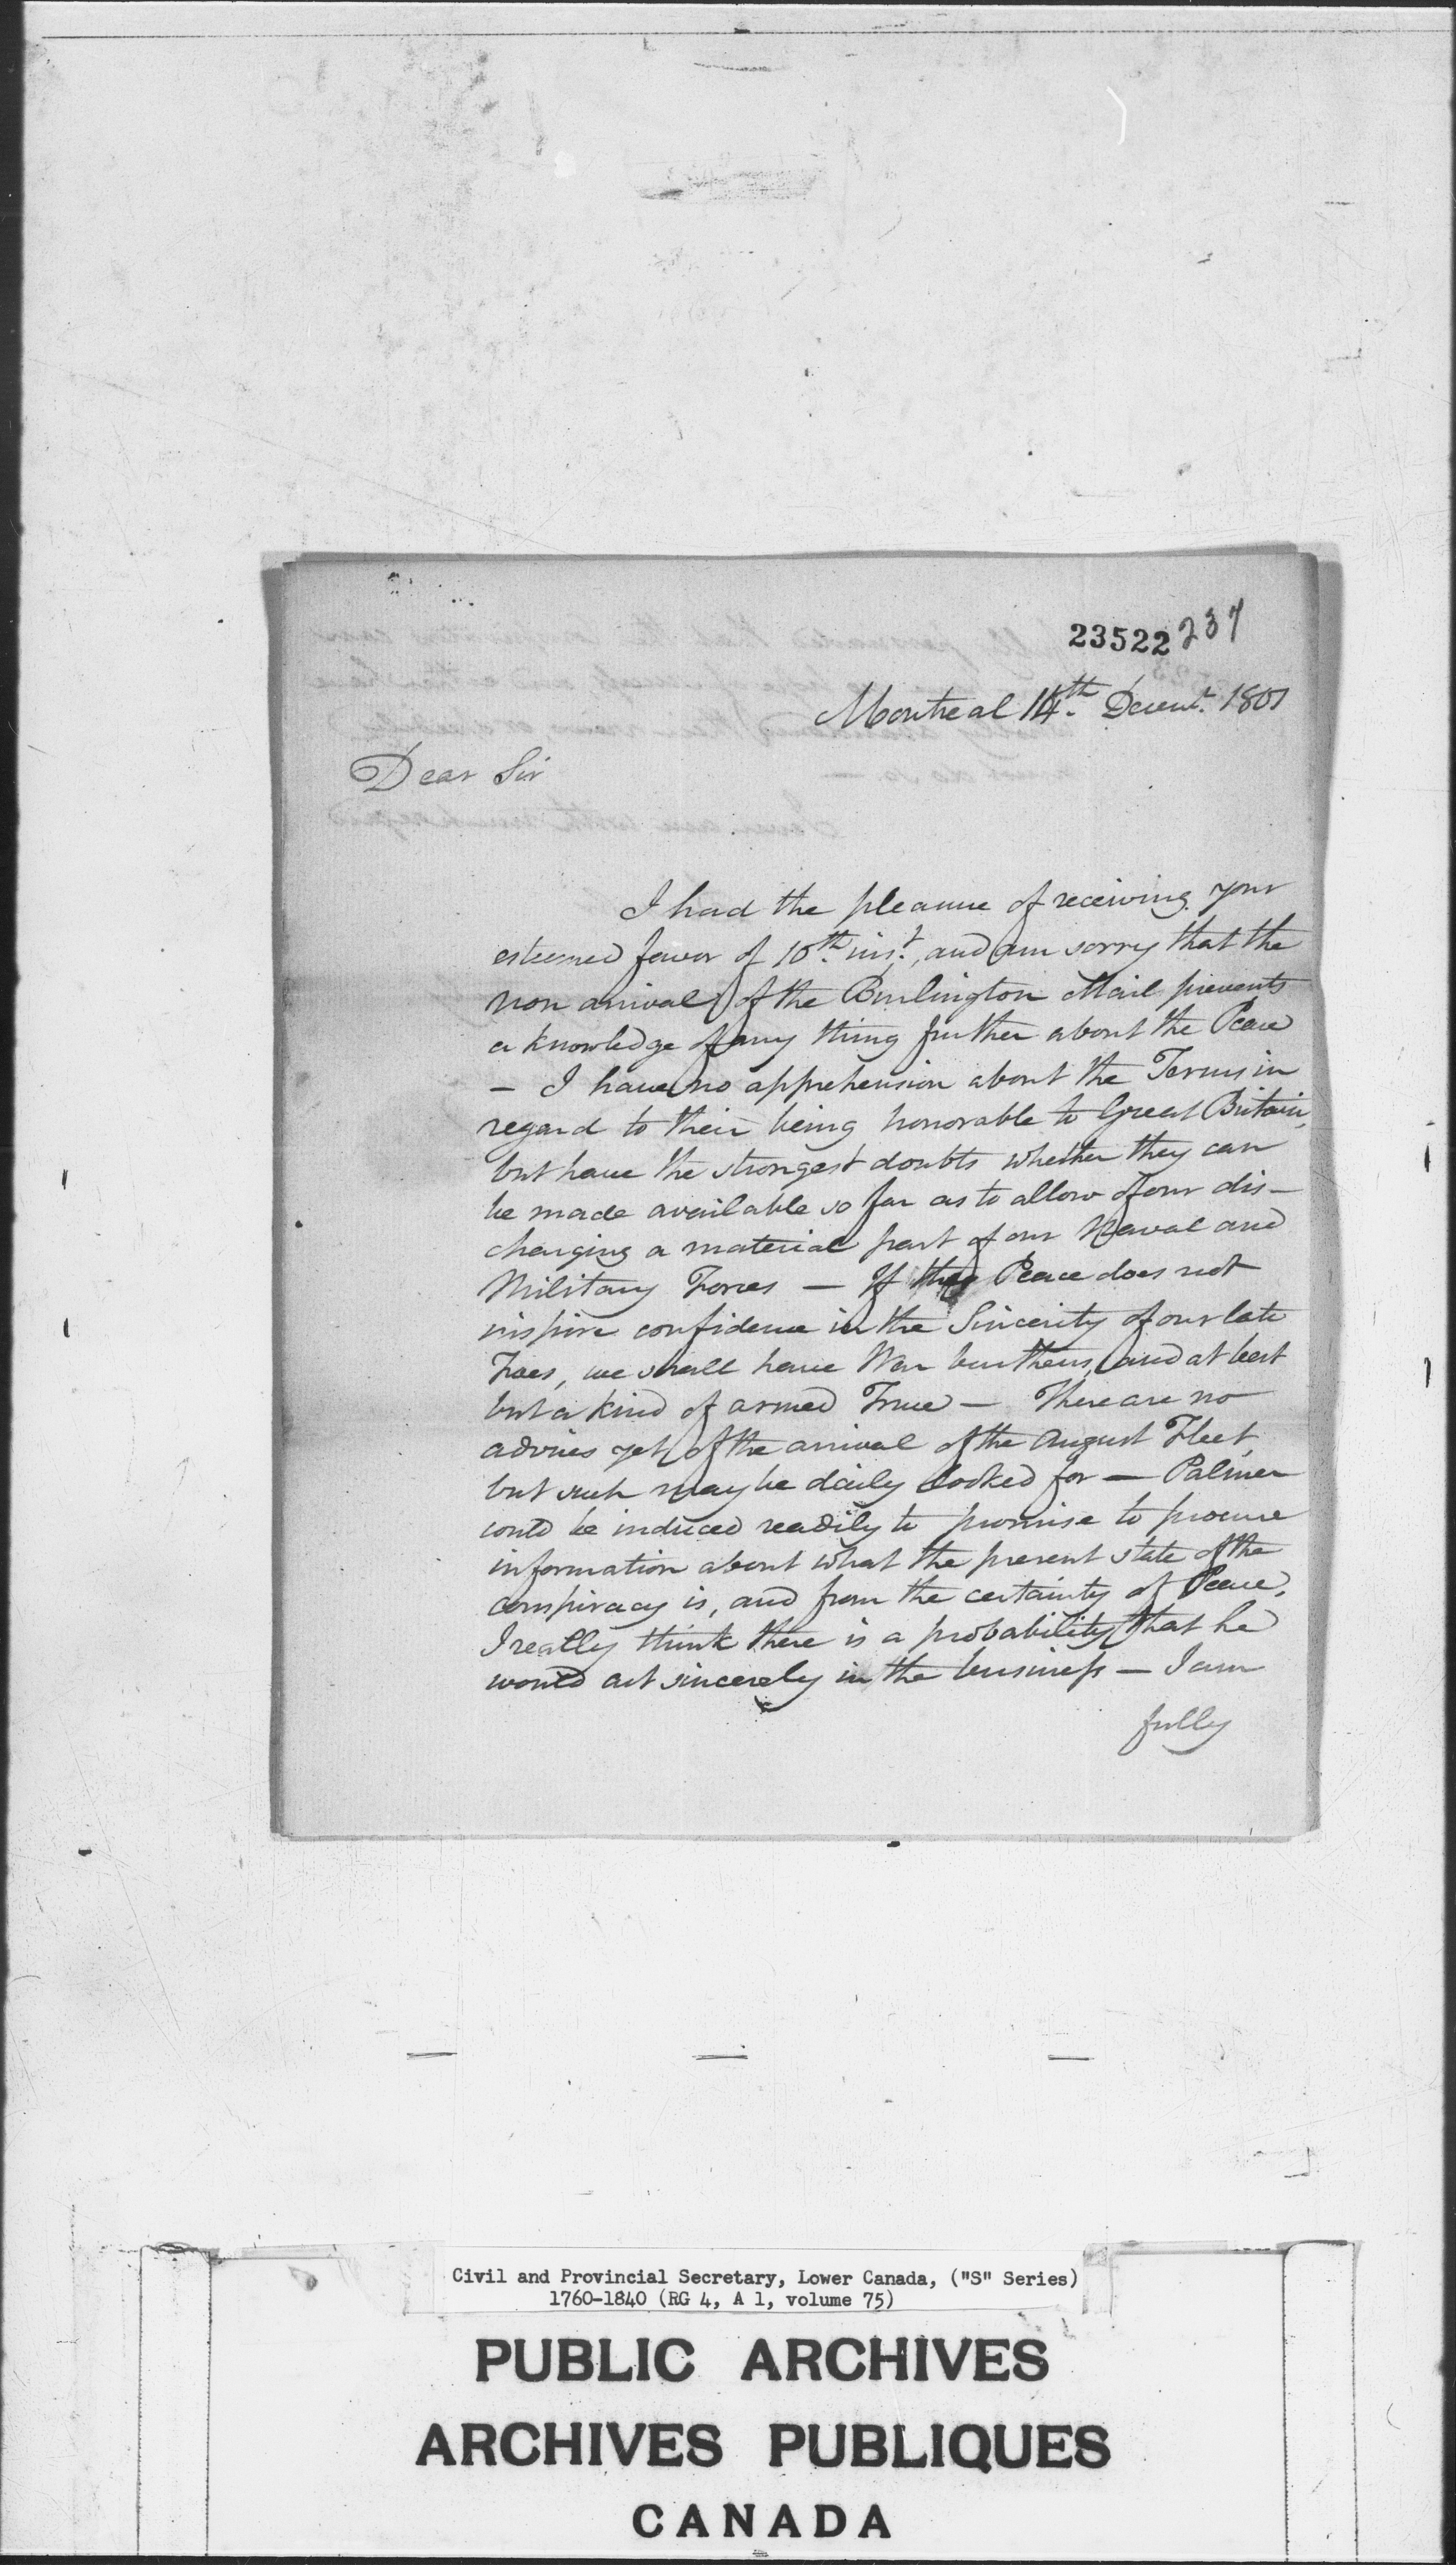 23522 237
Montreal 14th. Decemr. 1801
Dear Sir
I had the pleasure of receiving your
esteemed favor of 10th. inst., and am sorry that the
non arrival of the Burlington Mail prevents
a knowledge of any thing further about the Peace
— I have no apprehension about the Terms in
regard to their being honorable to Great Britain,
but have the strongest doubts whether they can
be made available so far as to allow of our dis-
charging a material part of our Naval and
Military Forces — If the Peace does not
inspire confidence in the Sincerity of our late
Foes, we shall have War burthens, and at best
but a kind of armed Truce — There are no
advices yet of the arrival of the August Fleet,
but such may be daily looked for — Palmer
could be induced readily to promise to procure
information about what the present state of the
conspiracy is, and from the certainty of Peace,
I really think there is a probability that he
would act sincerely in the business — I am
fully
Civil and Provincial Secretary, Lower Canada, ("S" Series)
1760-1840 (RG 4, A 1, volume 75)
PUBLIC ARCHIVES
ARCHIVES PUBLIQUES
CANADA